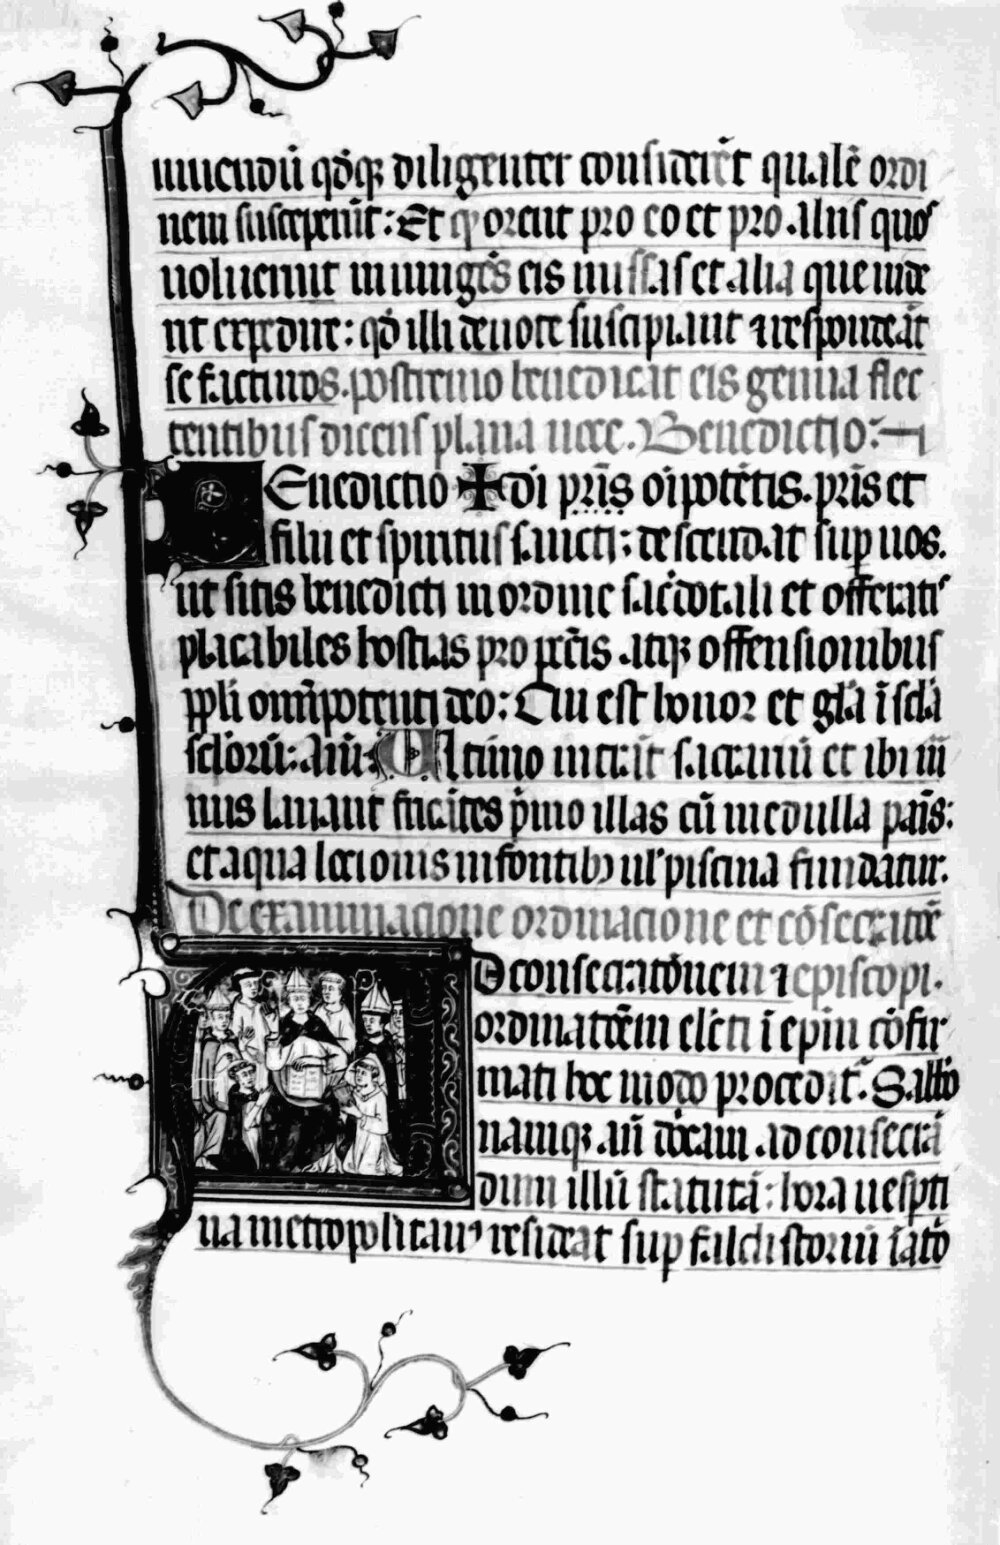 iniungendū qđ qꝫ diligenter considerēt qualē ordi
nem susceperīt: Et qꝫ orent pro eo et pro aliis quos
uoluerint iniungēs eis missas et alia que uide
rit expedire: qđ illi deuote suscipiant ⁊ respondeāt
se facturos. postremo benedicat eis genua flec
tentibus dicens plana uoce. Benedictio:
BEnedictio ✠ di pr̄is oīpotētis. pr̄is et
filii et spiritus sancti: descendat sup uos.
ut sitis benedicti in ordine sac̄dotali et offeratis
placabiles hostias pro pctīs atqꝫ offensionibus
ppli omīpotenti deo: Cui est honor et glā ī sclā
sclōrū: Am̄ Ultimo intrāt sacrariū et ibi m̄
nus lauant fricātes p̄mo illas cū medulla pan̄s:
et aqua lotionis in fontibꝫ uł piscina fundatur.
De examinacione ordinacione et cōsecratōe
AD consecratōnem ⁊ episcopi.
ordinatōem elēcti ī epīm cōfir
mati hoc modo procedit̄. Sabbō
namqꝫ aū dn̄cam ad consecrā
dum illū statutā: hora uesperti
na metropolitanꝰ resideat sup faldistoriū iatō